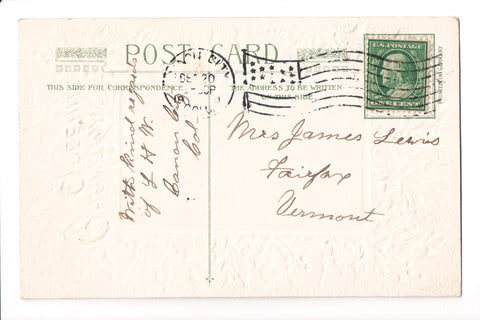 POST CARD
THIS SIDE FOR CORRESPONDENCE
THE ADDRESS TO BE WRITTEN
U.S. POSTAGE
DEC 20
With kind regards
of L H W.
Canon City
Col
Mrs James Lewis
Fairfax
Vermont